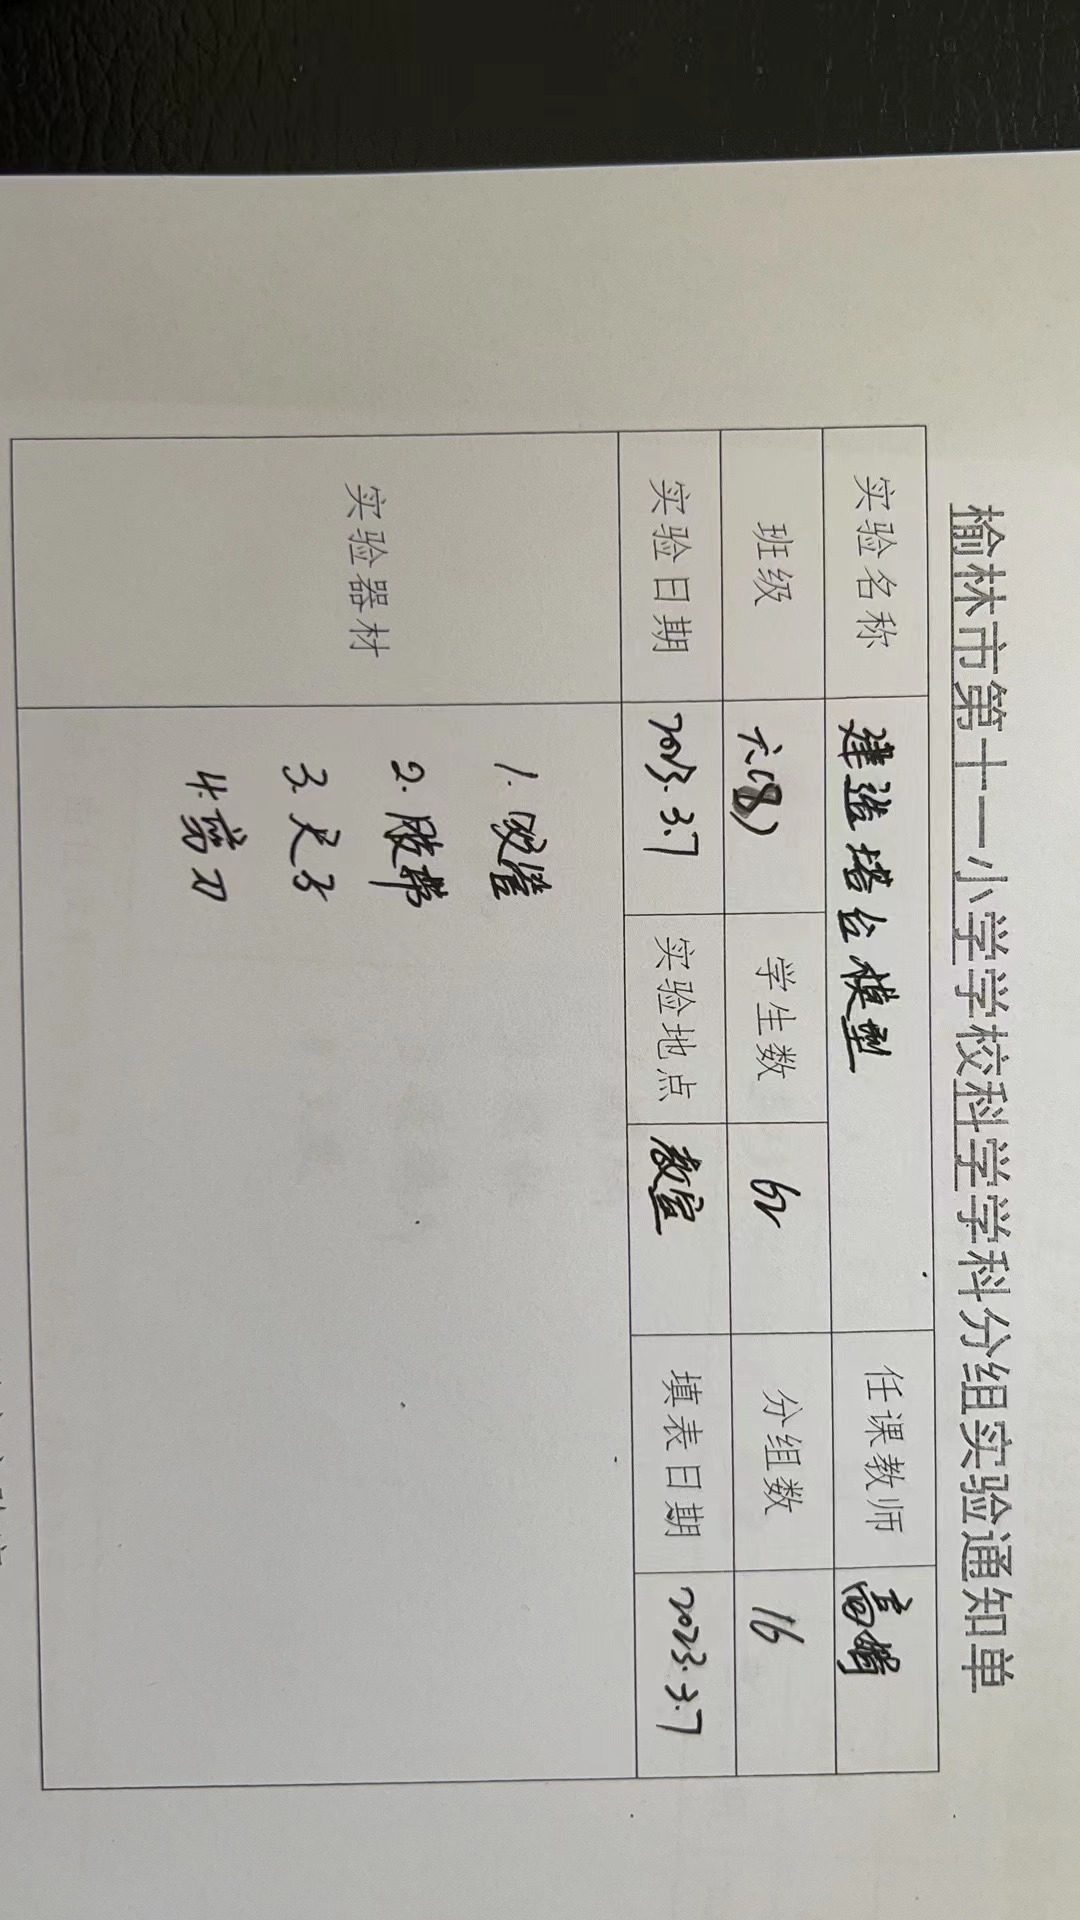 榆林市第十一小学学校科学学科分组实验通知单
实验名称 建造塔台模型 任课教师 高娟
班级 六(8) 学生数 62 分组数 16
实验日期 2023.3.7 实验地点 教室 填表日期 2023.3.7
实验器材
1.吸管
2.胶带
3.尺子
4.剪刀